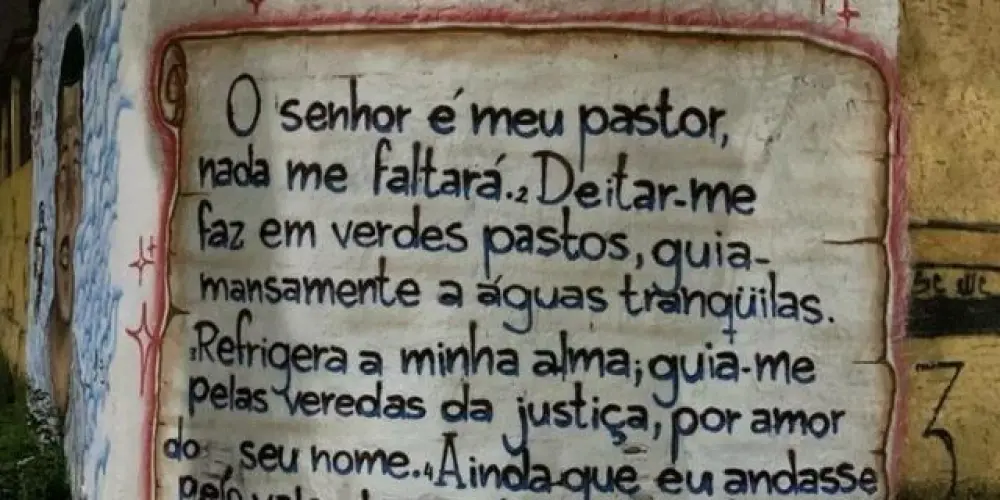 O senhor é meu pastor,
nada me faltará.2 Deitar-me
faz em verdes pastos, guia-
mansamente a águas tranqüilas.
3Refrigera a minha alma; guia-me
pelas veredas da justiça, por amor
do seu nome.4 Ainda que eu andasse
pelo vale
3